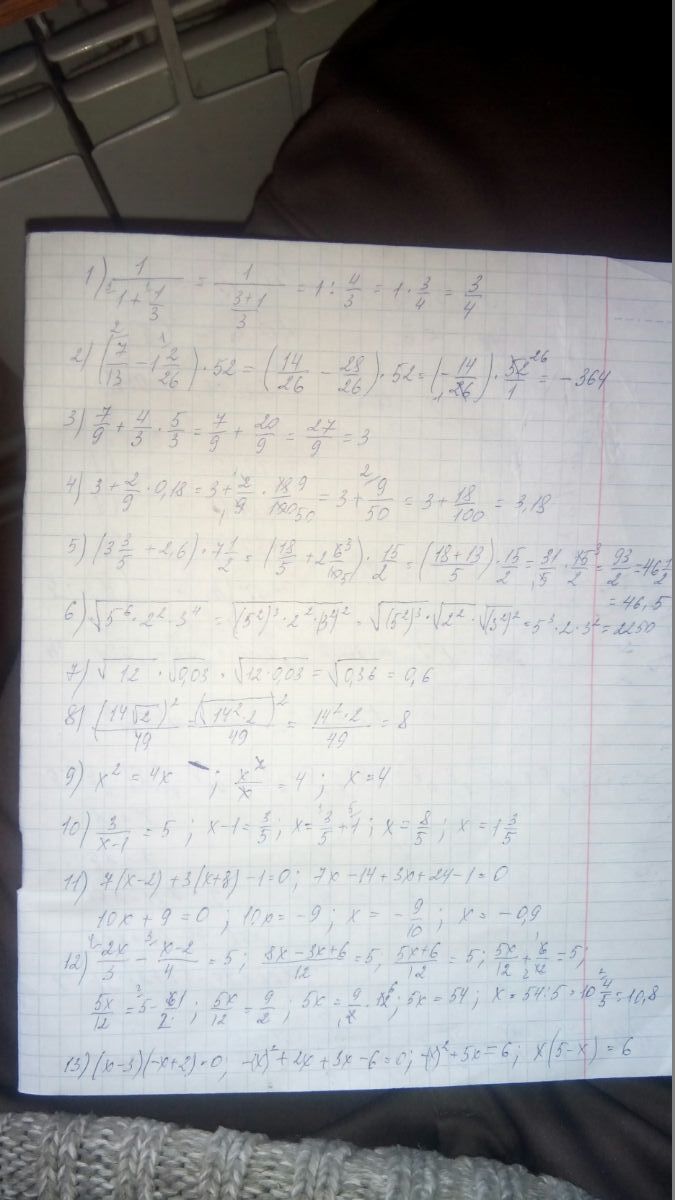 1) 1/(1+1/3) = 1/((3+1)/3) = 1 : 4/3 = 1 · 3/4 = 3/4
2) (7/13 - 1 2/26) · 52 = (14/26 - 28/26) · 52 = (-14/26) · 52/1 = -364
3) 7/9 + 4/3 · 5/3 = 7/9 + 20/9 = 27/9 = 3
4) 3 + 2/9 · 0,18 = 3 + 2/9 · 18/100 = 3 + 9/50 = 3 + 18/100 = 3,18
5) (3 3/5 + 2,6) · 7 1/2 = (18/5 + 2 6/10) · 15/2 = ((18+13)/5) · 15/2 = 31/5 · 15/2 = 93/2 = 46 1/2
= 46,5
6) √(5⁶ · 2² · 3⁴) = √((5²)³ · 2² · (3²)²) = √((5²)³) · √(2²) · √((3²)²) = 5³ · 2 · 3² = 2250
7) √12 · √0,03 = √(12 · 0,03) = √0,36 = 0,6
8) (14√2)²/49 = (√(14² · 2))²/49 = 14² · 2/49 = 8
9) x² = 4x ; x²/x = 4 ; x = 4
10) 3/(x-1) = 5 ; x-1 = 3/5 ; x = 3/5 + 1 ; x = 8/5 ; x = 1 3/5
11) 7(x-2) + 3(x+8) - 1 = 0 ; 7x - 14 + 3x + 24 - 1 = 0
10x + 9 = 0 ; 10x = -9 ; x = -9/10 ; x = -0,9
12) 2x/3 - (x-2)/4 = 5 ; (8x - 3x + 6)/12 = 5 ; (5x+6)/12 = 5 ; 5x/12 + 6/12 = 5 ;
5x/12 = 5 - 1/2 ; 5x/12 = 9/2 ; 5x = 9/2 · 12 ; 5x = 54 ; x = 54 : 5 = 10 4/5 = 10,8
13) (x-3)(-x+2) = 0 ; -(x)² + 2x + 3x - 6 = 0 ; -(x)² + 5x = 6 ; x(5-x) = 6